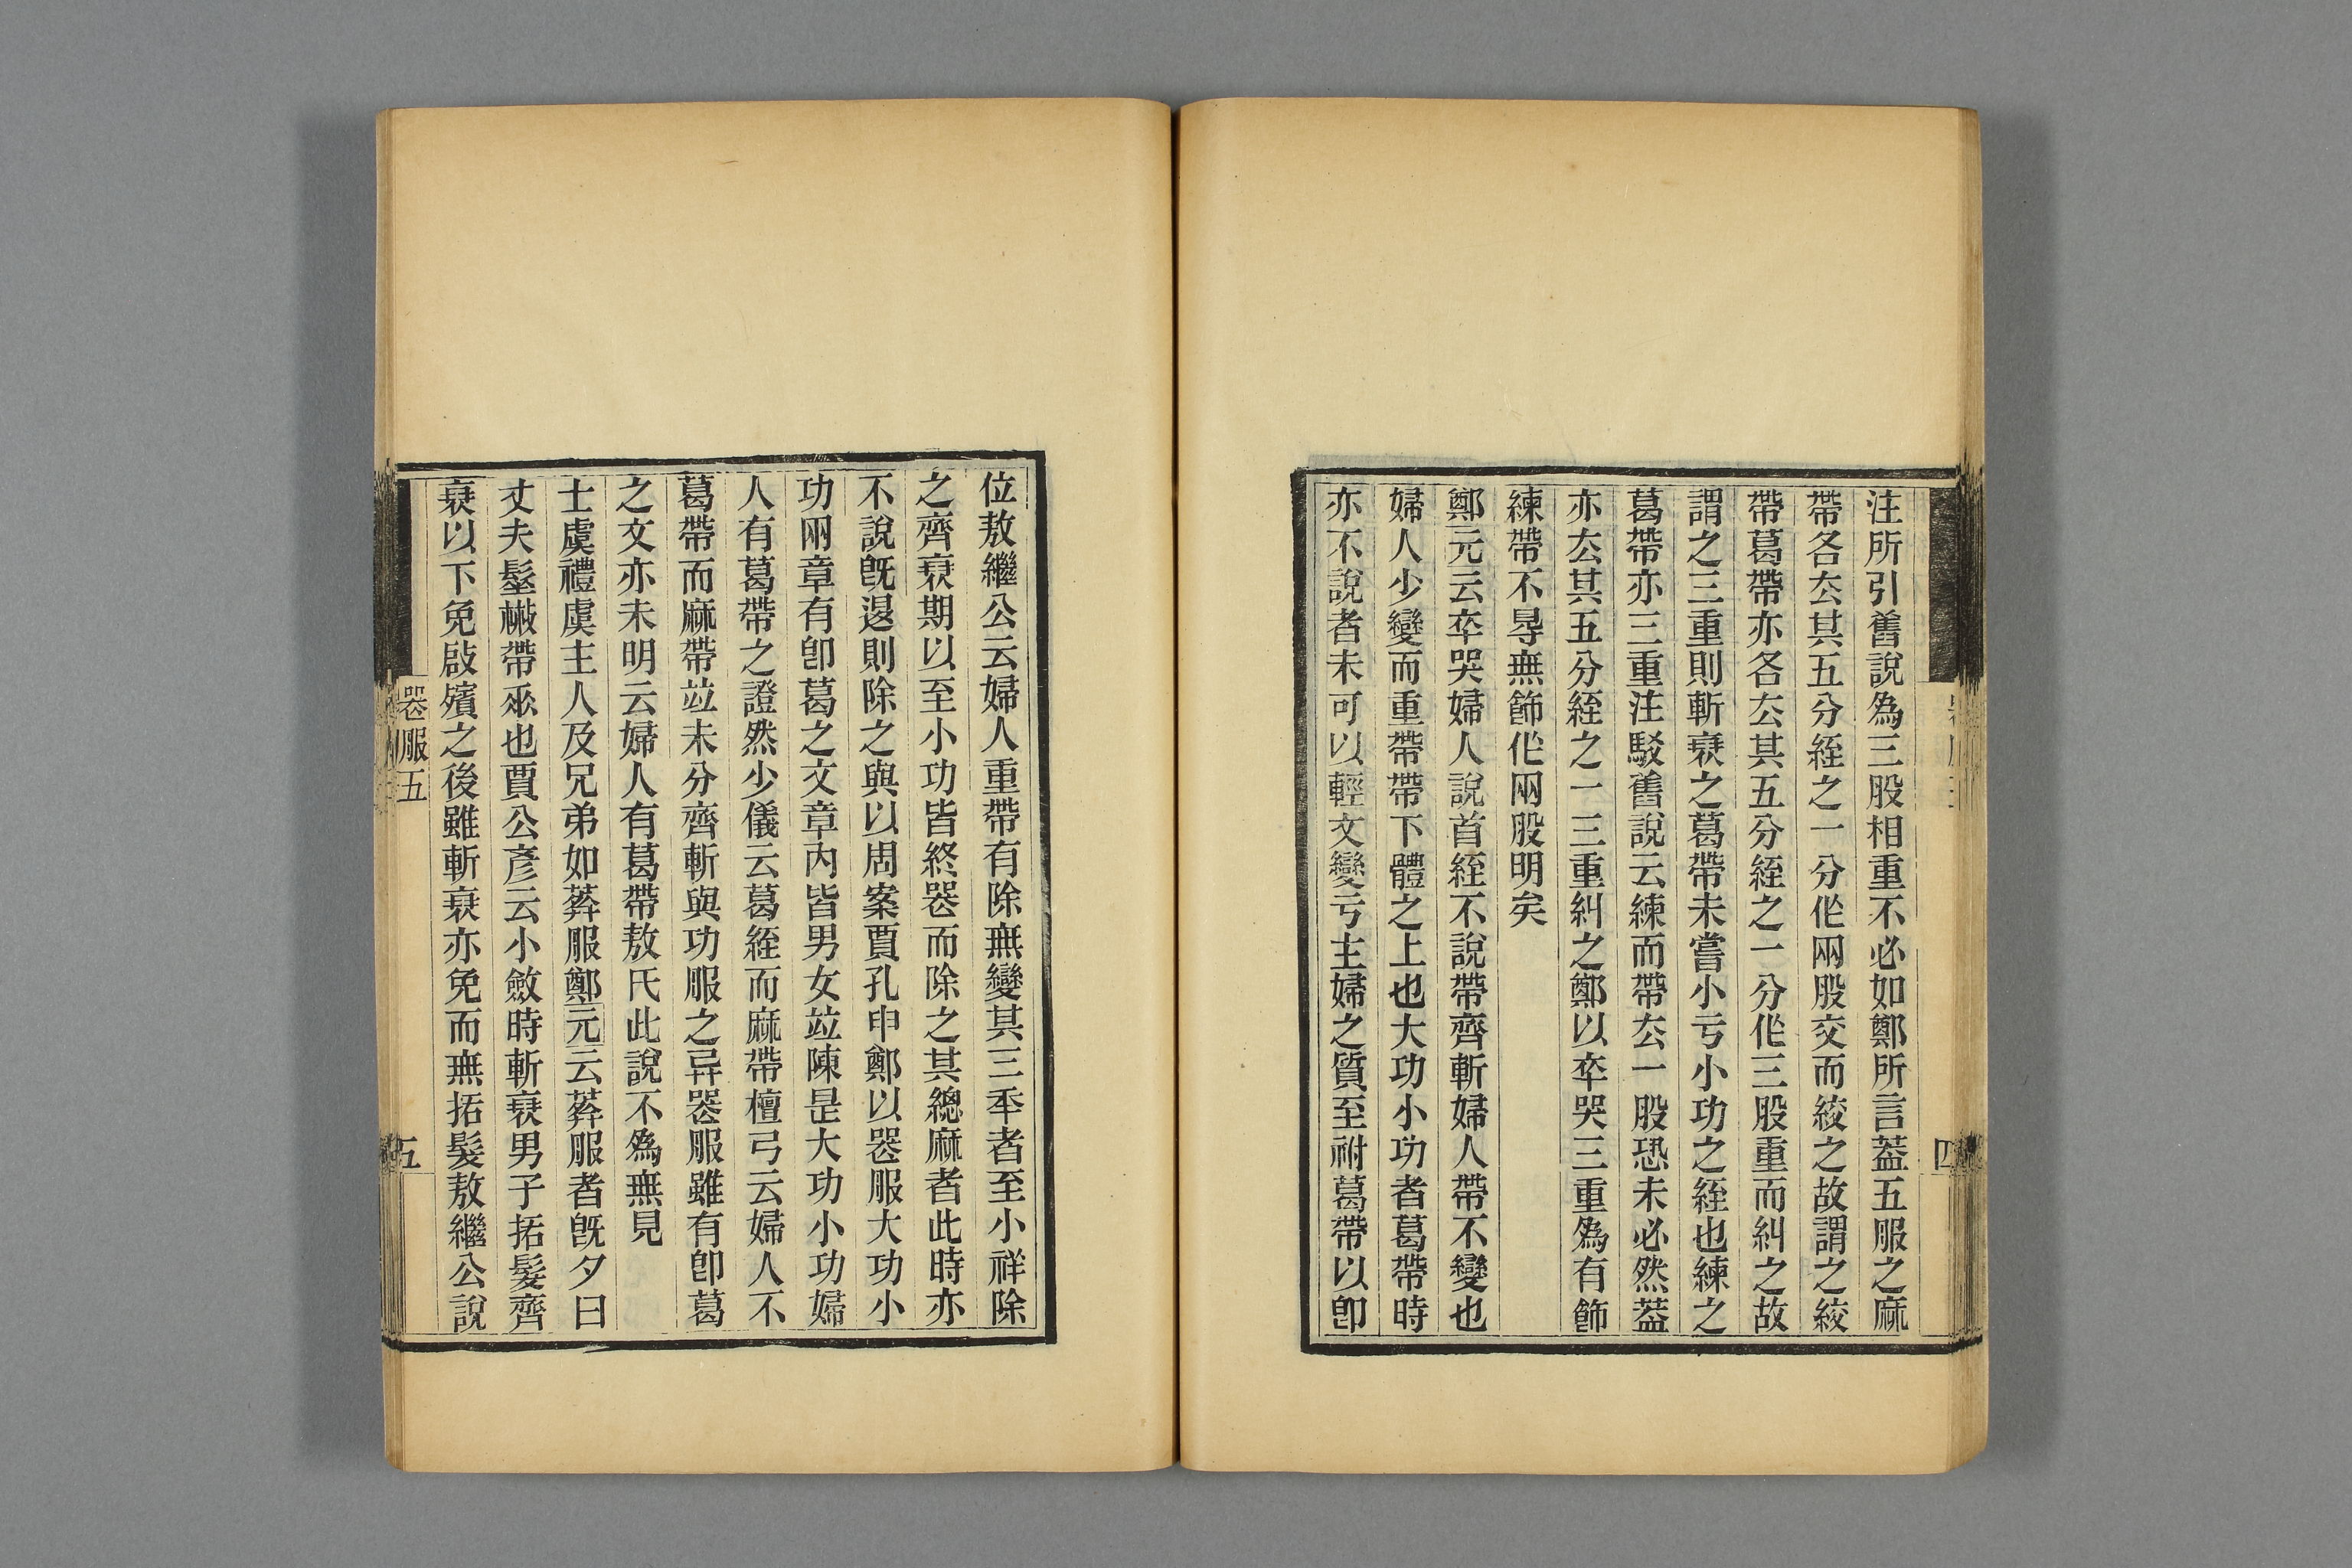 注所引舊說為三股相重不必如鄭所言葢五服之麻
帶各厺其五分絰之一分作兩股交而絞之故謂之絞
帶葛帶亦各厺其五分絰之一分作三股重而糾之故
謂之三重則斬衰之葛帶未嘗小亏小功之絰也練之
葛帶亦三重注駁舊說云練而帶厺一股恐未必然葢
亦厺其五分絰之一三重糾之鄭以卒哭三重為有飾
練帶不㝵無飾作兩股明矣
鄭元云卒哭婦人說首絰不說帶齊斬婦人帶不變也
婦人少變而重帶帶下體之上也大功小功者葛帶時
亦不說者未可以輕文變亏主婦之質至祔葛帶以卽
四
位敖繼公云婦人重帶有除無變其三秊者至小祥除
之齊衰期以至小功皆終喪而除之其緦麻者此時亦
不說旣𨓤則除之與以周案賈孔申鄭以喪服大功小
功兩章有卽葛之文章內皆男女竝陳是大功小功婦
人有葛帶之證然少儀云葛絰而麻帶檀弓云婦人不
葛帶而麻帶竝未分齊斬與功服之异喪服雖有卽葛
之文亦未明云婦人有葛帶敖氏此說不為無見
士虞禮虞主人及兄弟如葬服鄭元云葬服者旣夕曰
丈夫髽散帶𠂹也賈公彥云小斂時斬衰男子括髮齊
衰以下免啟殯之後雖斬衰亦免而無括髮敖繼公說
喪服五
五